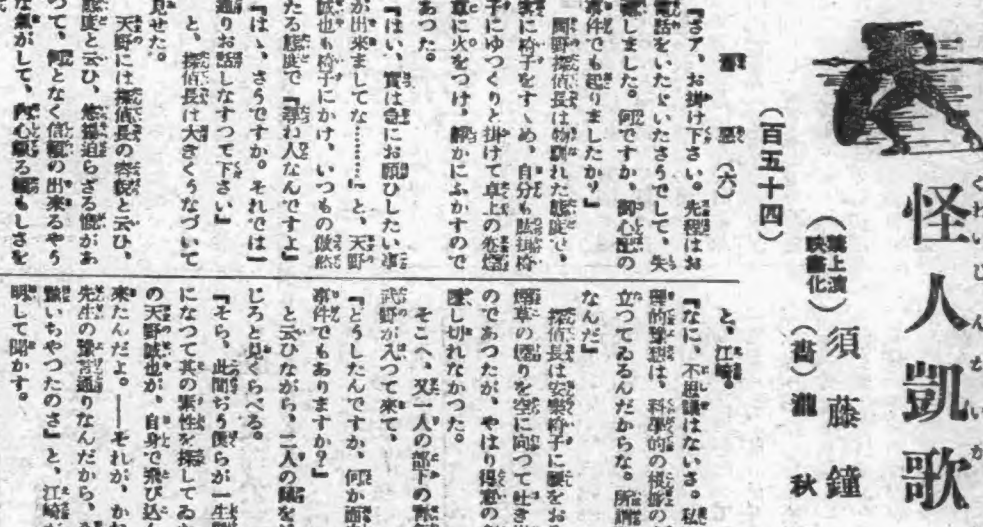 怪人凱歌
須藤鐘
(禁上演
映畫化)
(畵) 瀧秋
(百五十四)
惡 (六)
『さア、お掛け下さい。先程はお
電話をいたゞいたさうでして、失
禮しました。何ですか、御心配の
事件でも起りましたか?』
岡野探偵長は物馴れた態度で、
客に椅子をすゝめ、自分も肱掛椅
子にゆつくりと掛けて卓上の卷煙
草に火をつけ、靜かにふかすので
あつた。
『はい、實は急にお願ひしたい事
が出來ましてな…………』と、天野
誠也も椅子にかけ、いつもの傲然
たる態度で『尋ね人なんですよ』
『はゝ、さうですか。それでは一
通りお話しなすつて下さい』
と、探偵長は大きくうなづいて
見せた。
天野には探偵長の容貌と云ひ、
態度と云ひ、悠揚迫らざる慨があ
つて、何となく信頼の出來るやう
な氣がして、内心頼る頼もしさを
と、江崎。
『なに、不思議はないさ。私
理的豫想は、科學的の根據の
立つてゐるんだからな。所謂
なんだ』
探偵長は安樂椅子に腰をお
煙草の煙りを空に向つて吐き出
のであつたが、やはり得意の
隱し切れなかつた。
そこへ、又一人の部下の
武野が入つて來て、
『どうしたんですか、何か面
事件でもありますか?』
と云ひながら、二人の顔を
じろと見くらべる。
『そら、此間ぢう僕らが一生懸
になつて其の素性を探してゐた
の天野誠也が、自身で飛び込ん
來たんだよ。――それが、かね
先生の豫言通りなんだから、
驚いちやつたのさ』と、江崎が
明して聞かす。